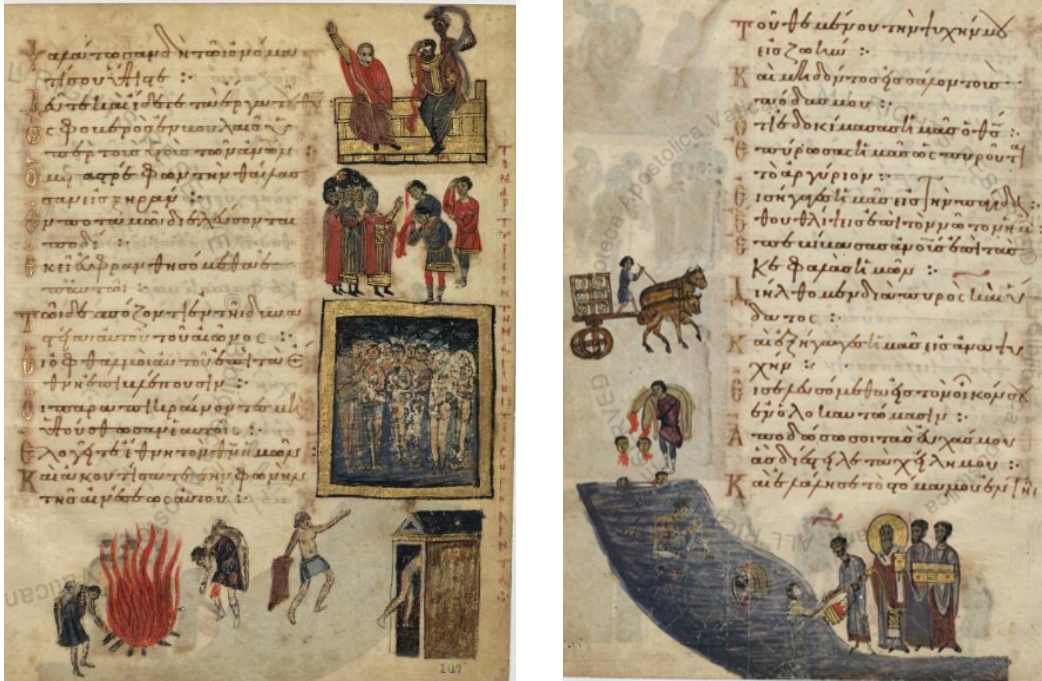 Ψαλάτωσαν δὴ τῶ ὀνόμα
τί σου ὕψιστε :·
Δεῦτε καὶ ἴδετε τὰ ἔργα τοῦ θυ
ὡς φοβερὸς ἐν βουλαῖς ὑ
πὲρ τοὺς υἱοὺς τῶν ἀνων :·
Ὁ μεταστρέφων τὴν θάλασ
σαν εἰς ξηράν :·
Ἐν ποταμῶ διελεύσονται
ποδί :·
Ἐκεῖ εὐφρανθησόμεθα ἐπ
αὐτῶ :·
Τῶ δεσπόζοντι ἐν τῆ δυνα
στεία αὐτοῦ τοῦ αἰῶνος :·
Οἱ ὀφθαλμοὶ αὐτοῦ ἐπὶ τὰ ἔ
θνη ἐπιβλέπουσιν :·
Οἱ παραπικραίνοντες μὴ
ὑψούσθωσαν ἐν ἑαυτοῖς :·
Εὐλογεῖτε ἔθνη τὸν θν ἡμῶν
Καὶ ἀκουτίσατε τὴν φωνὴν
τῆς αἰνέσεως αὐτοῦ :·
Τοῦ θεμένου τὴν ψυχήν μου
εἰς ζωήν :·
Καὶ μὴ δόντος εἰς σάλον τοὺς
πόδας μου :·
Ὅτι ἐδοκίμασας ἡμᾶς ὁ θς :·
Ἐπύρωσας ἡμᾶς ὡς πυροῦται
τὸ ἀργύριον :·
Εἰσήγαγες ἡμᾶς εἰς τὴν παγίδα
Ἔθου θλίψεις ἐπὶ τὸν νῶτον ἡμῶν
Ἐπεβίβασας ἀνους ἐπὶ τὰς
κεφαλὰς ἡμῶν :·
Διήλθομεν διὰ πυρὸς καὶ ὕ
δατος :·
Καὶ ἐξήγαγες ἡμᾶς εἰς ἀναψυ
χήν :·
Εἰσελεύσομαι εἰς τὸν οἶκόν σου
ἐν ὁλοκαυτώμασιν :·
Ἀποδώσω σοι τὰς εὐχάς μου
ἃς διέστειλε τὰ χείλη μου :·
Καὶ ἐλάλησε τὸ στόμα μου ἐν τῆ